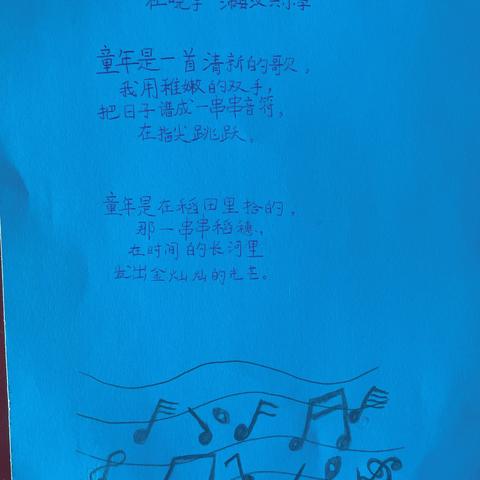 童年是一首清新的歌，
我用稚嫩的双手，
把日子谱成一串串音符，
在指尖跳跃。
童年是在稻田里拾的，
那一串串稻穗，
在时间的长河里
发出金灿灿的光芒。